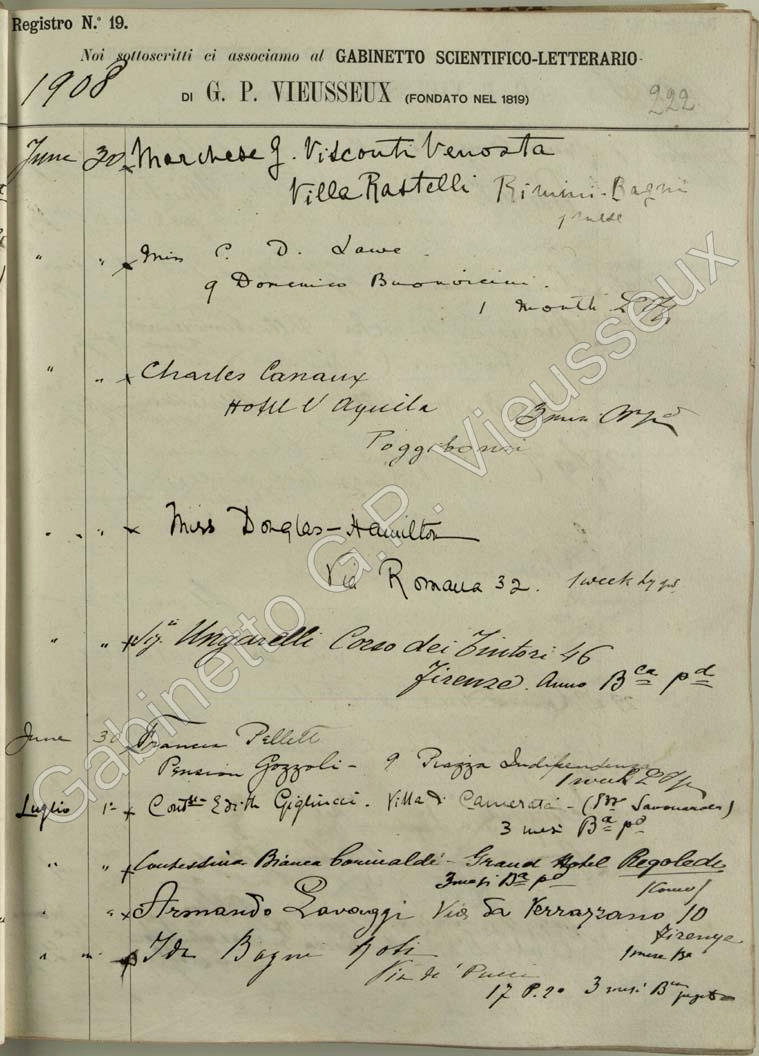 Registro N.º 19.
Noi sottoscritti ci associamo al GABINETTO SCIENTIFICO-LETTERARIO
1908
DI G. P. VIEUSSEUX (FONDATO NEL 1819)
222
June 30 Marchese G. Visconti Venosta
Villa Rastelli Rimini-Bagni
1 mese
" " Miss C. D. Lawe
9 Domenico Buonvicini.
1 month
" " Charles Canaux
Hotel l'Aquila 3 mesi
Poggibonsi
" " Miss Douglas-Hamilton
Via Romana 32. 1 week
" " Sig.ª Ungarelli Corso dei Tintori 46
Firenze. Anno B ca p d
June 30 Pellett
Pension Gozzoli - 9 Piazza Indipendenza
1 week
Luglio 1º Edith Gigliucci. Villa di Camerata - (
3 mesi B a p d
" " Contessina Bianca Corinaldi - Grand Hotel Regoledo
3 mesi B a p d
(Como)
" " Armando Via da Verrazzano 10
Firenze
1 mese Ba
" " Ida Bagni
Via de' Pucci
17 P. 2º 3 mesi
Gabinetto G.P. Vieusseux